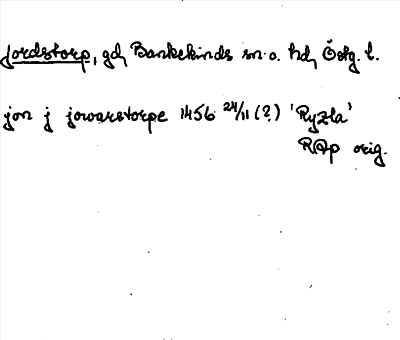 Jordstorp, gd, Bankekinds sn. o. hd, Östg. l.
jon j jowarstorpe 1456 24/11 (?) 'Ryzla'
RAp orig.